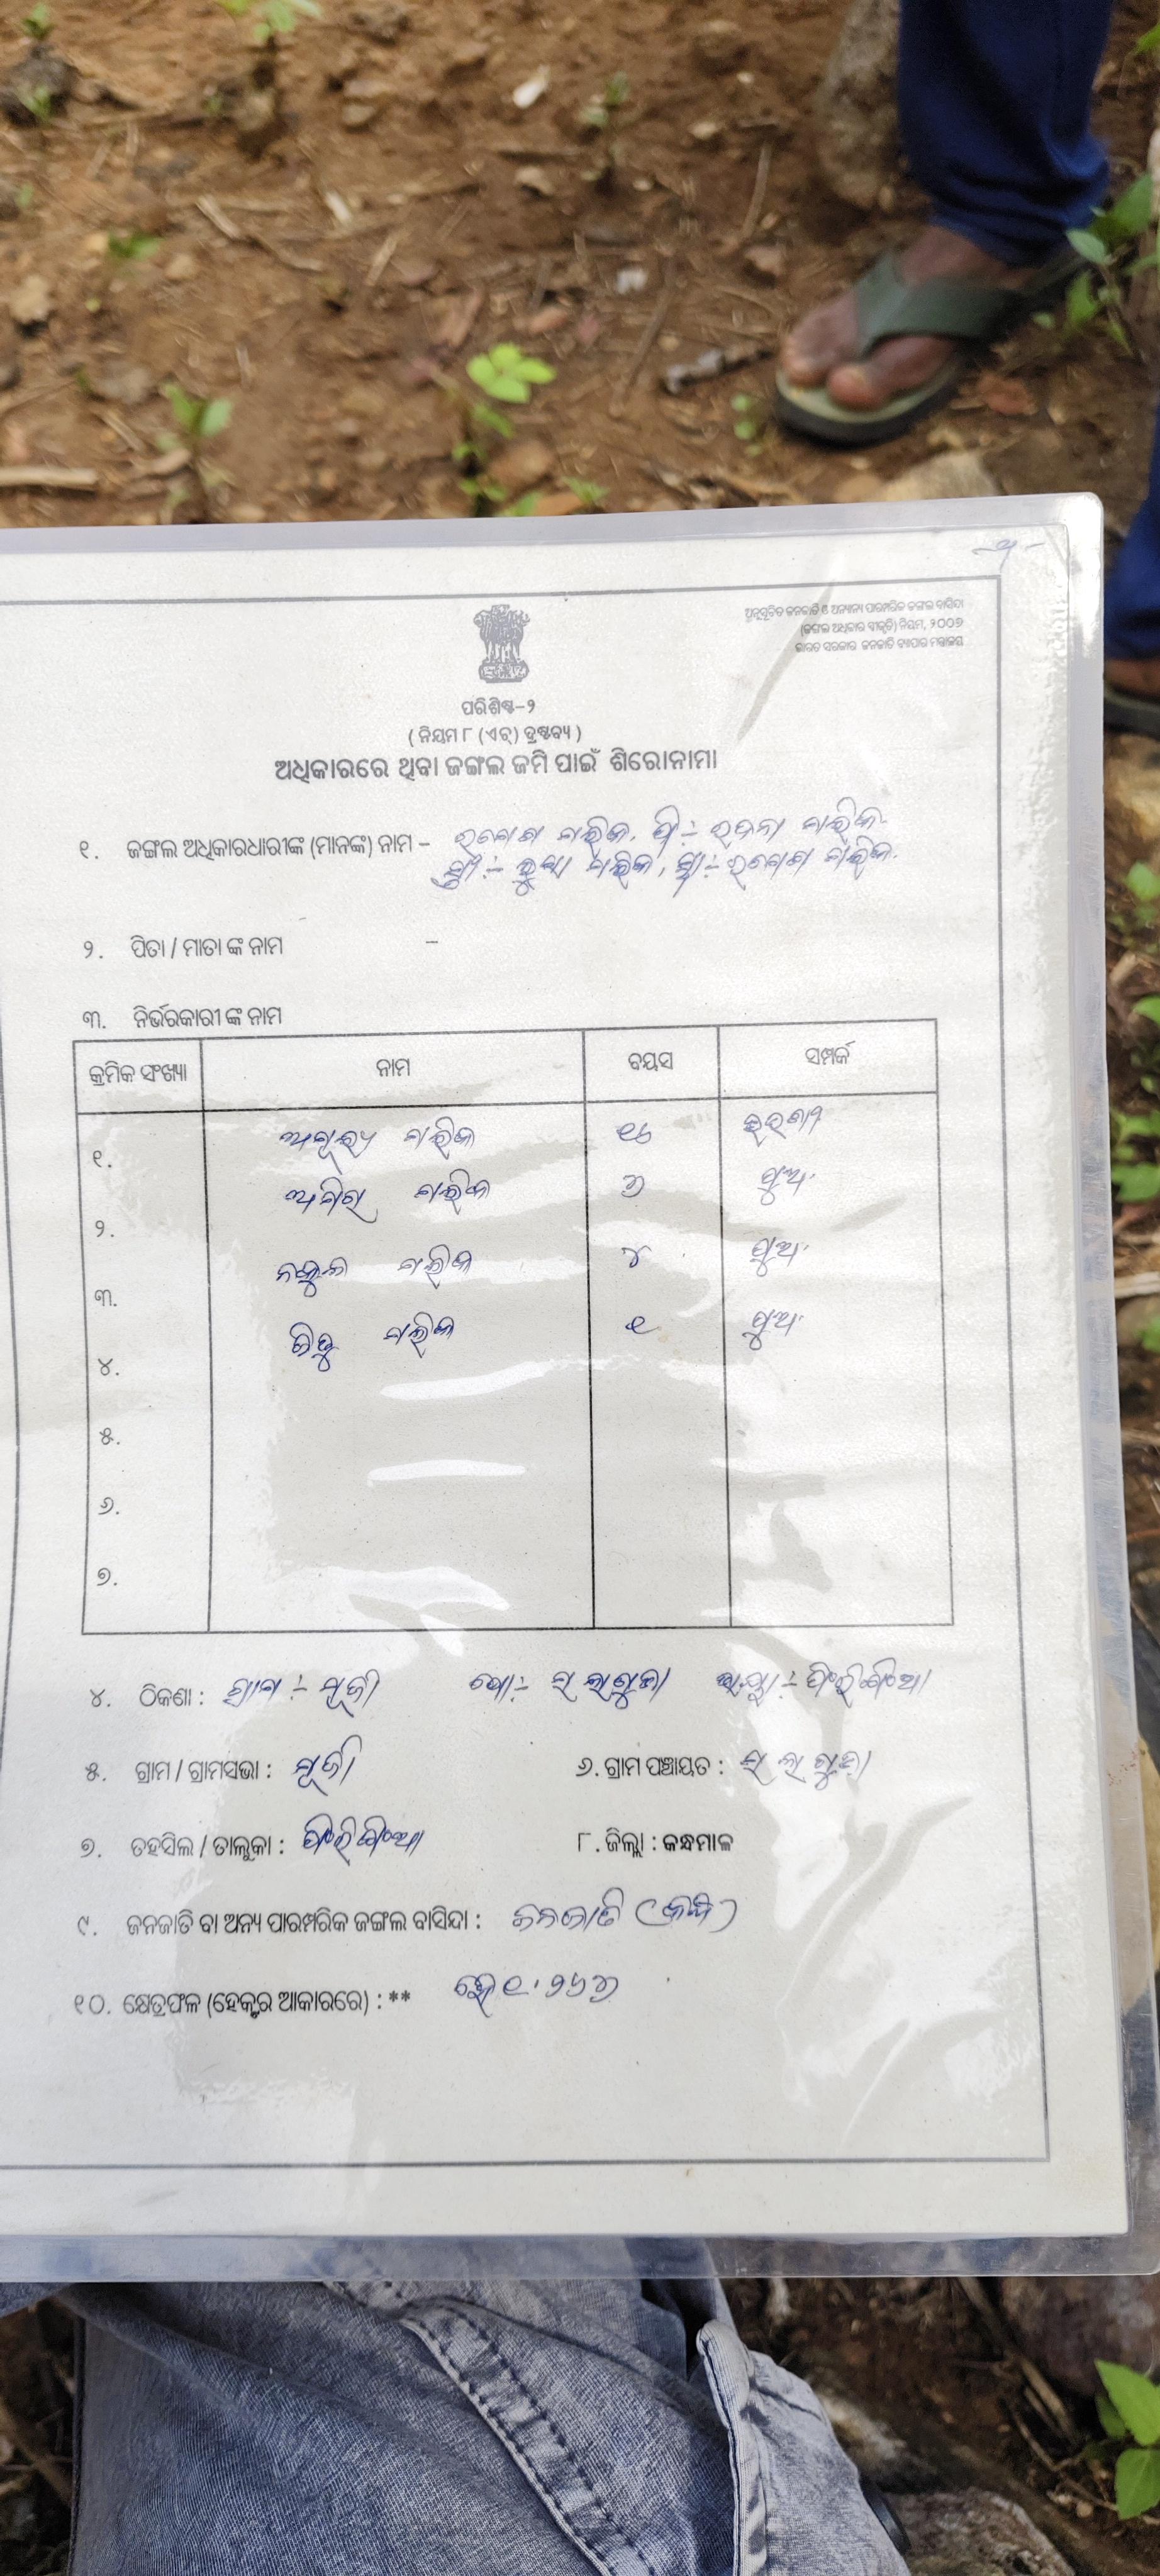 ଅନୁସୂଚିତ ଜନଜାତି ଓ ଅନ୍ୟାନ୍ୟ ପାରମ୍ପରିକ ଜଙ୍ଗଲ ବାସିନ୍ଦା
(ଜଙ୍ଗଲ ଅଧିକାର ସ୍ୱୀକୃତି) ନିୟମ, ୨୦୦୭
ଭାରତ ସରକାର ଜନଜାତି ବ୍ୟାପାର ମନ୍ତ୍ରାଳୟ
ପରିଶିଷ୍ଟ-୨
( ନିୟମ ୮ (ଏଚ୍) ଦ୍ରଷ୍ଟବ୍ୟ )
ଅଧିକାରରେ ଥିବା ଜଙ୍ଗଲ ଜମି ପାଇଁ ଶିରୋନାମା
୧. ଜଙ୍ଗଲ ଅଧିକାରଧାରୀଙ୍କ (ମାନଙ୍କ) ନାମ – ମଲିକ, ପି:- ମଲିକ
ସ୍ତ୍ରୀ:- ମଲିକ, ସ୍ୱା:- ମଲିକ
୨. ପିତା / ମାତା ଙ୍କ ନାମ –
୩. ନିର୍ଭରକାରୀ ଙ୍କ ନାମ
କ୍ରମିକ ସଂଖ୍ୟା ନାମ ବୟସ ସମ୍ପର୍କ
୧. ମଲିକ ୧୬
୨. ମଲିକ ୭ ପୁଅ
୩. ନକୁଳ ମଲିକ ୪ ପୁଅ
୪. ମଲିକ ୧ ପୁଅ
୫.
୬.
୭.
୪. ଠିକଣା : ଗ୍ରାମ:- ପୋ:- ସଲାଗୁଡା ଫିରିଙ୍ଗିଆ
୫. ଗ୍ରାମ / ଗ୍ରାମସଭା : ୬. ଗ୍ରାମ ପଞ୍ଚାୟତ : ସଲାଗୁଡା
୭. ତହସିଲ / ତାଲୁକା : ଫିରିଙ୍ଗିଆ ୮. ଜିଲ୍ଲା : କନ୍ଧମାଳ
୯. ଜନଜାତି ବା ଅନ୍ୟ ପାରମ୍ପରିକ ଜଙ୍ଗଲ ବାସିନ୍ଦା : ଜନଜାତି (କନ୍ଧ)
୧୦. କ୍ଷେତ୍ରଫଳ (ହେକ୍ଟର ଆକାରରେ) : ** ହେ ୧.୨୬୭